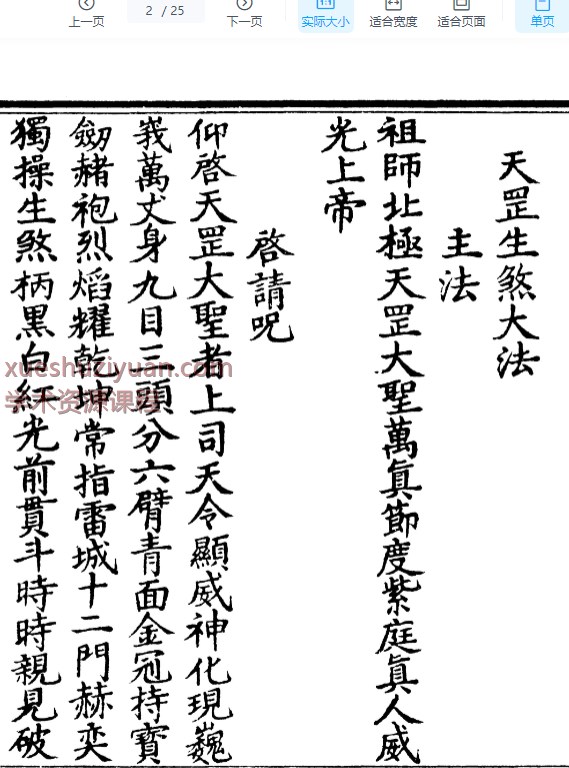 上一页
2 / 25
下一页
实际大小
适合宽度
适合页面
单页
天罡生煞大法
主法
祖師北極天罡大聖萬眞節度紫庭眞人威
光上帝
啓請呪
仰啓天罡大聖者上司天令顯威神化現巍
峩萬丈身九目三頭分六臂青面金冠持寳
劒赭袍烈熖耀乾坤常指雷城十二門赫奕
獨操生煞柄黑白紅光前貫斗時時親見破
xueshuziyuan.com
学术资源课程